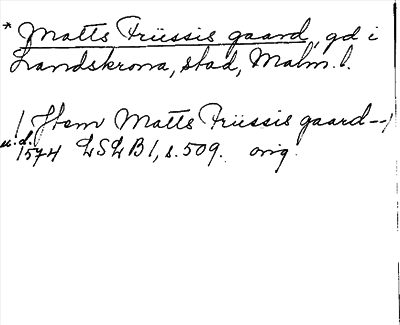 * Matts Früssis gaard, gd i
Landskrona, stad, Malm. l.
/ Item Matts Früssis gaard--/
u.d.
1574 LSLB 1, s. 509. orig.